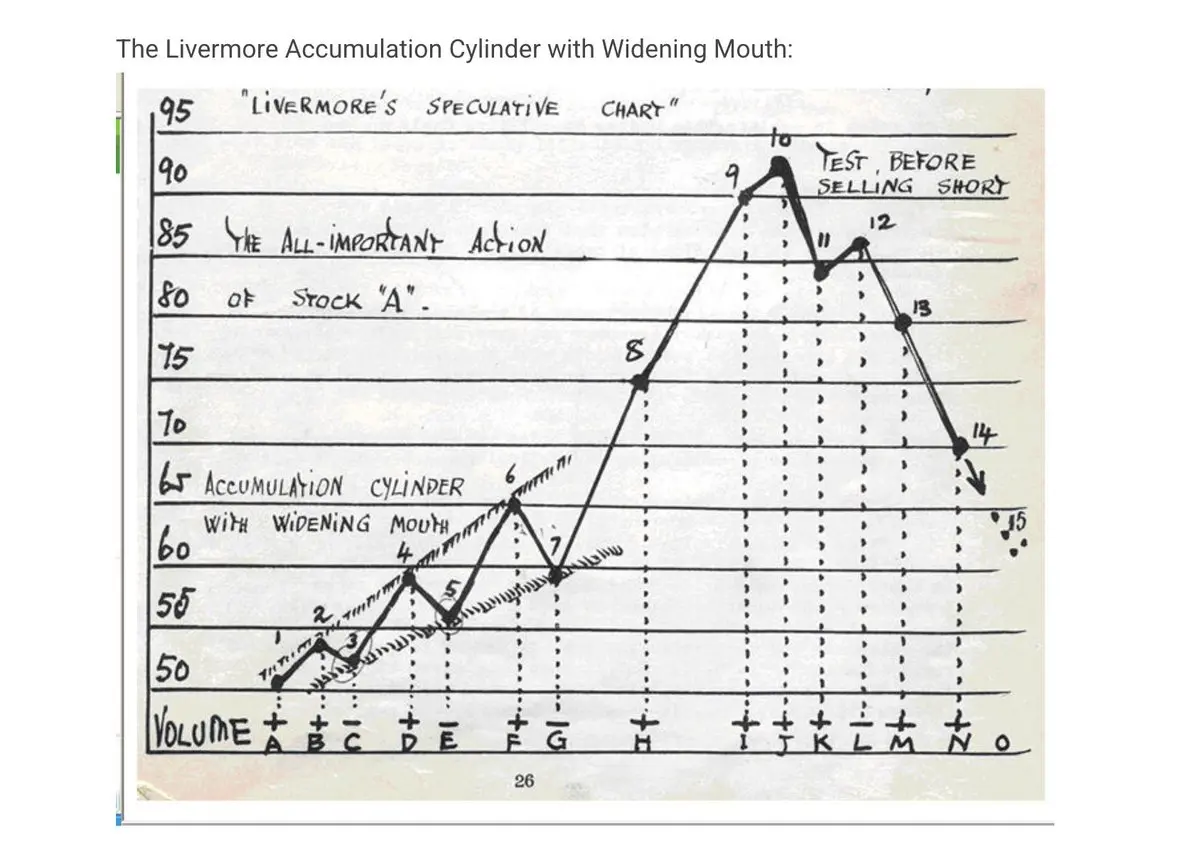 The Livermore Accumulation Cylinder with Widening Mouth:
95 "LIVERMORE'S SPECULATIVE CHART"
10
90 9 TEST, BEFORE
SELLING SHORT
85 THE ALL-IMPORTANT ACTION 11 12
80 OF STOCK "A". 13
75 8
70 14
65 ACCUMULATION CYLINDER 6
WITH WIDENING MOUTH 15
60 4 7
55 2 5
1 3
50
VOLUME + + - + - + - + + + + - + +
A B C D E F G H I J K L M N O
26